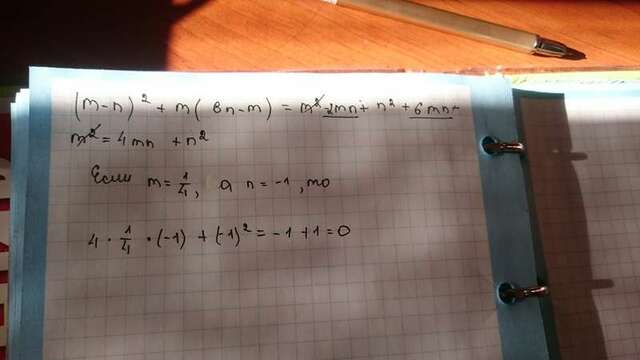 (m-n)² + m(6n-m) = m² -2mn + n² + 6mn -
m² = 4mn + n²
Если m = 1/4, а n = -1, то
4 · 1/4 · (-1) + (-1)² = -1 + 1 = 0